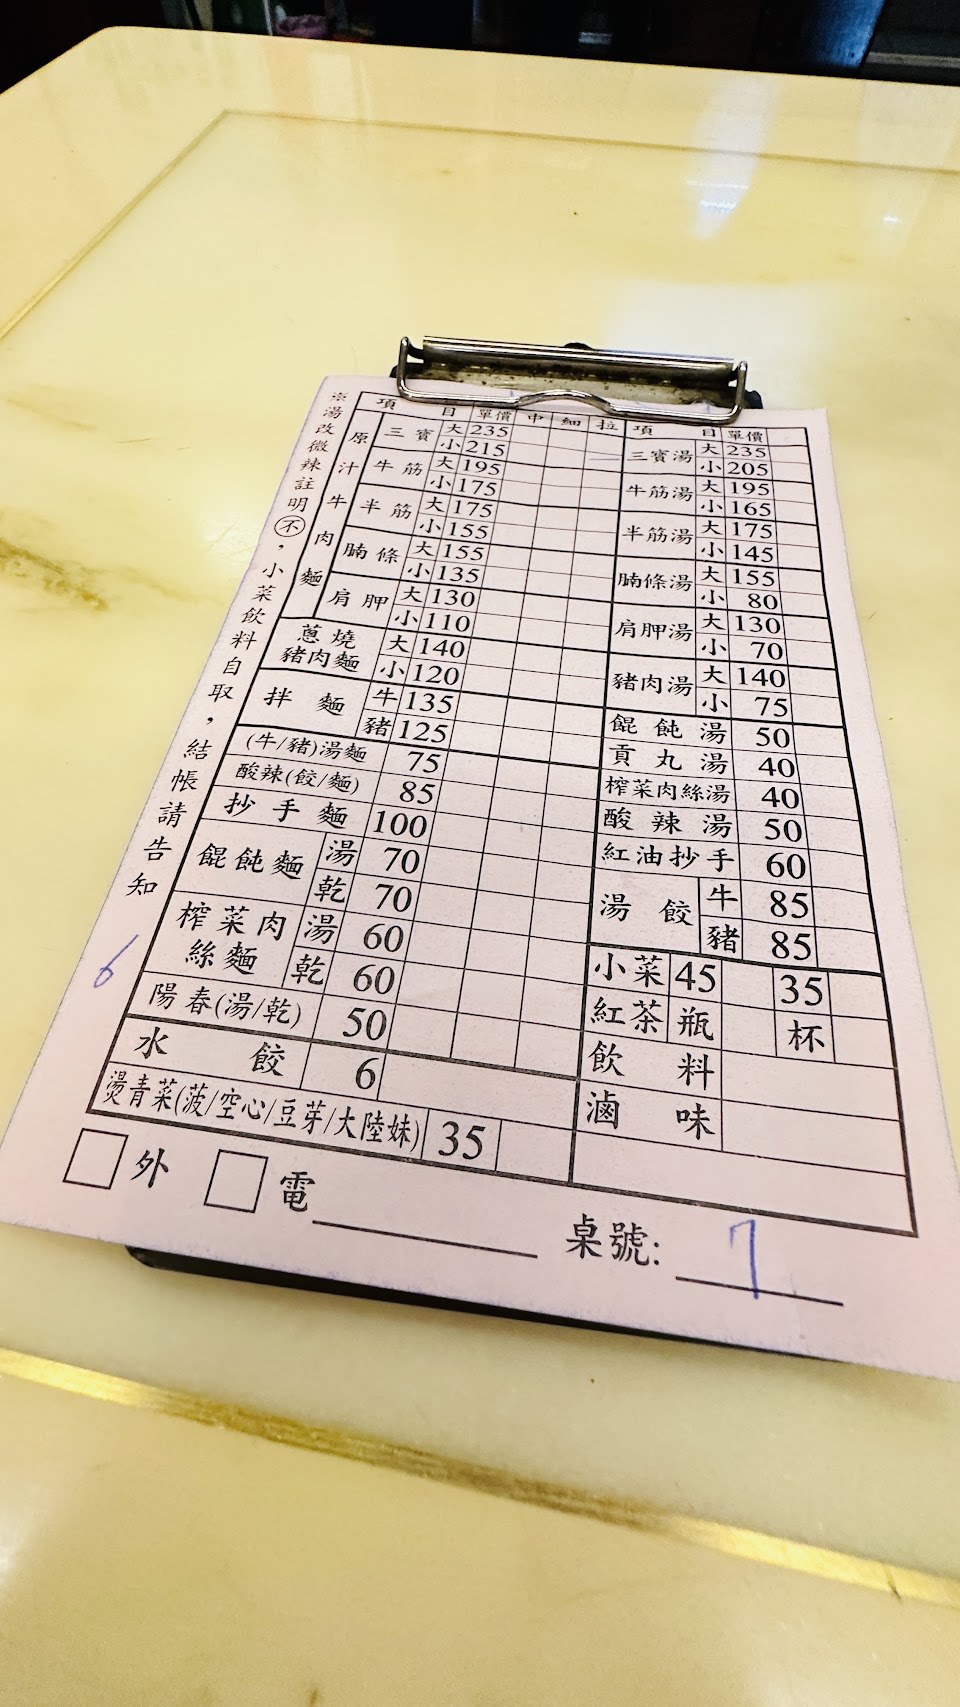 ※湯改微辣註明不,小菜飲料自取,結帳請告知
項目 單價 中 細 拉
原汁牛肉麵
三寶 大 235
小 215
牛筋 大 195
小 175
半筋 大 175
小 155
腩條 大 155
小 135
肩胛 大 130
小 110
蔥燒豬肉麵 大 140
小 120
拌麵 牛 135
豬 125
(牛/豬)湯麵 75
酸辣(餃/麵) 85
抄手麵 100
餛飩麵 湯 70
乾 70
榨菜肉絲麵 湯 60
乾 60
陽春(湯/乾) 50
水餃 6
燙青菜(菠/空心/豆芽/大陸妹) 35
項目 單價
三寶湯 大 235
小 205
牛筋湯 大 195
小 165
半筋湯 大 175
小 145
腩條湯 大 155
小 80
肩胛湯 大 130
小 70
豬肉湯 大 140
小 75
餛飩湯 50
貢丸湯 40
榨菜肉絲湯 40
酸辣湯 50
紅油抄手 60
湯餃 牛 85
豬 85
小菜 45 35
紅茶 瓶 杯
飲料
滷味
6
外 電 桌號: 7